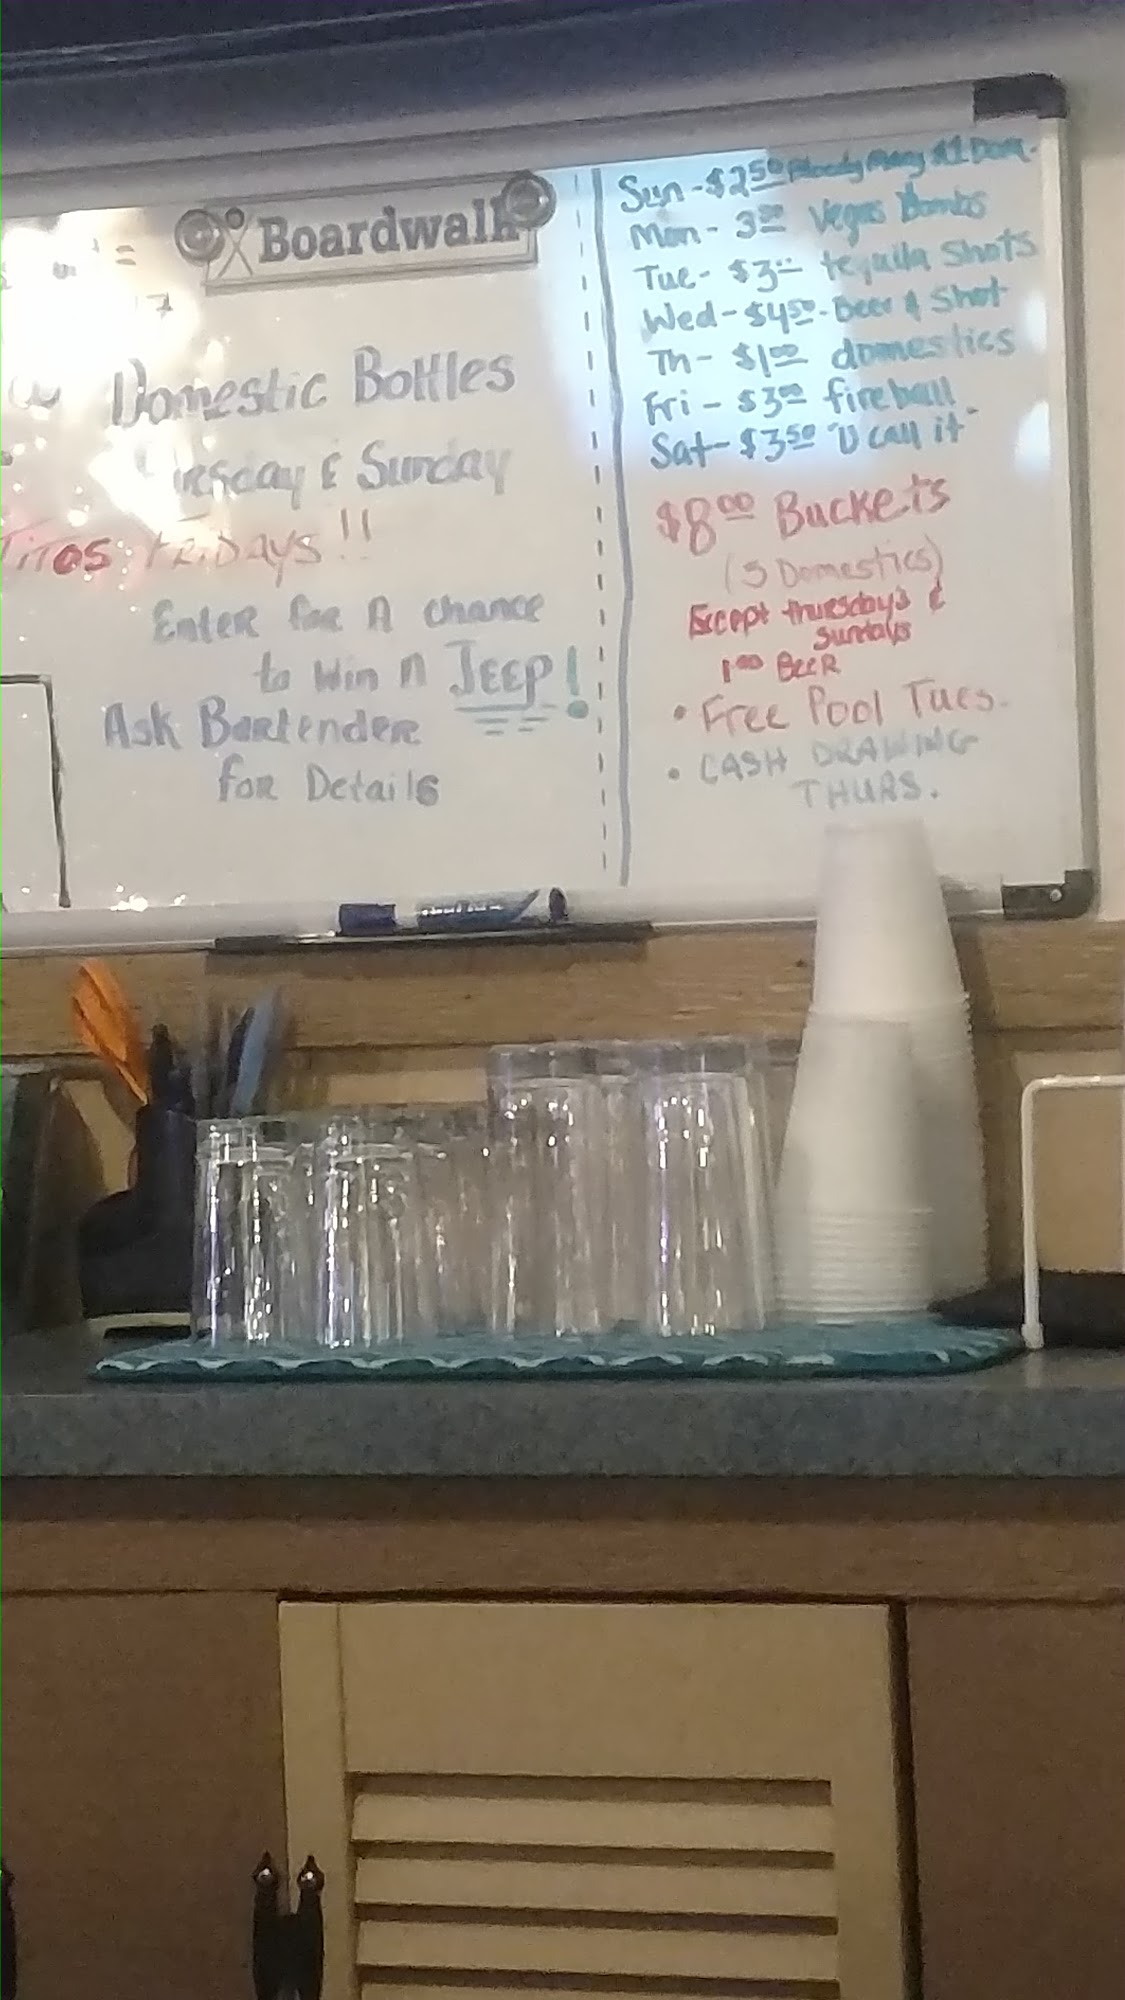 Boardwalk
Domestic Bottles
& Sunday
TITOS FRIDAYS!!
Enter for A chance
to Win A JEEP!
Ask Bartender
for Details
Sun - $2.50 Bloody Mary $1 Dom.
Mon - 3.00 Vegas Bombs
Tue - $3.00 tequila Shots
Wed - $4.50 - Beer & Shot
Th - $1.00 domestics
Fri - $3.00 fireball
Sat - $3.50 "U call it"
$8.00 Buckets
(5 Domestics)
Except thursdays &
sundays
1.00 BEER
• Free Pool Tues.
• CASH DRAWING
THURS.